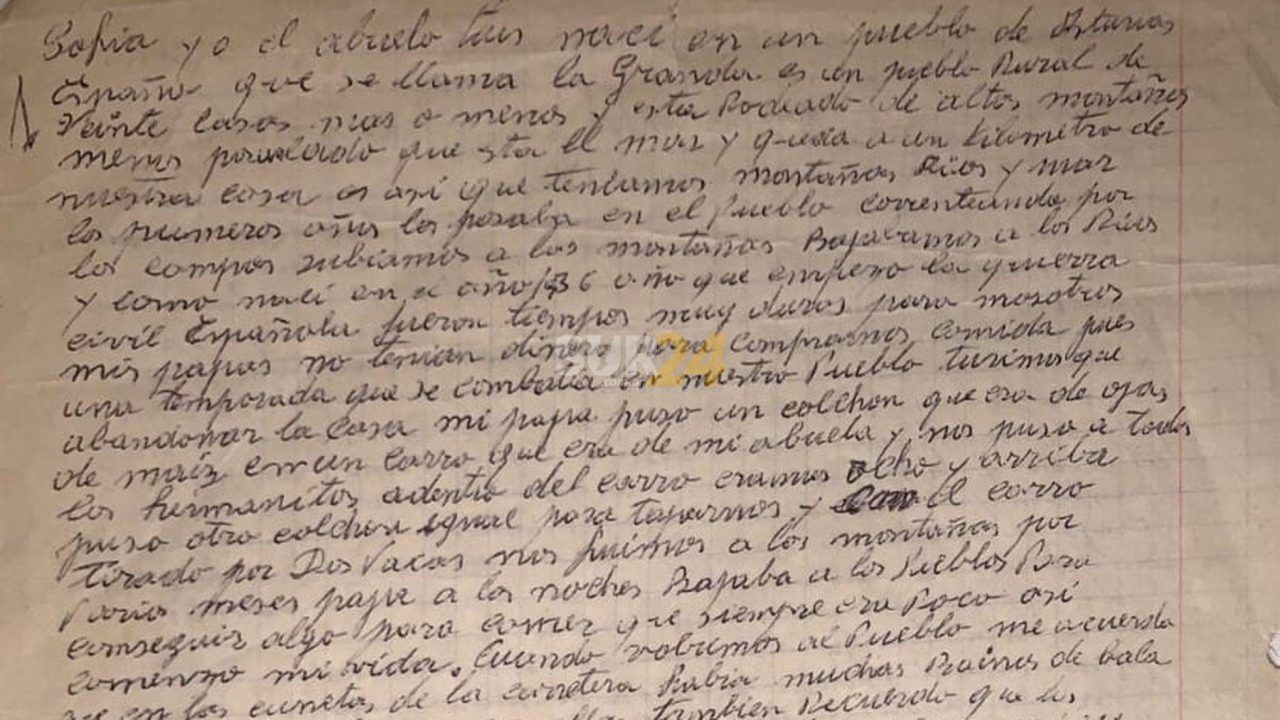 Sofia yo el abuelo Luis naci en un pueblo de Asturias
España que se llama la Granda es un pueblo Rural de
Veinte casas mas o menos y esta Rodiado de altas montañas
menos por el lado que esta el mar y queda a un kilometro de
nuestra casa es asi que teniamos montañas Rios y mar
los primeros años los pasaba en el Pueblo correteando por
los campos subiamos a las montañas Bajabamos a los Rios
y como naci en el año 1936 año que empezo la guerra
civil Española fueron tiempos muy duros para nosotros
mis papas no tenian dinero para comprarnos comida pues
una temporada que se combatia en nuestro Pueblo tuvimos que
abandonar la casa mi papa puso un colchon que era de ojas
de maiz en un carro que era de mi abuela y nos puso a todos
los hermanitos adentro del carro eramos ocho y arriba
puso otro colchon igual para taparnos y el carro
tirado por Dos Vacas nos fuimos a las montañas por
Varios meses papa a las noches Bajaba a los Pueblos Para
conseguir algo para comer que siempre era Poco asi
comenzo mi vida. Cuando volvimos al Pueblo me acuerdo
que en las cunetas de la carretera Habia muchas Bainas de bala
tambien Recuerdo que los
SUR24